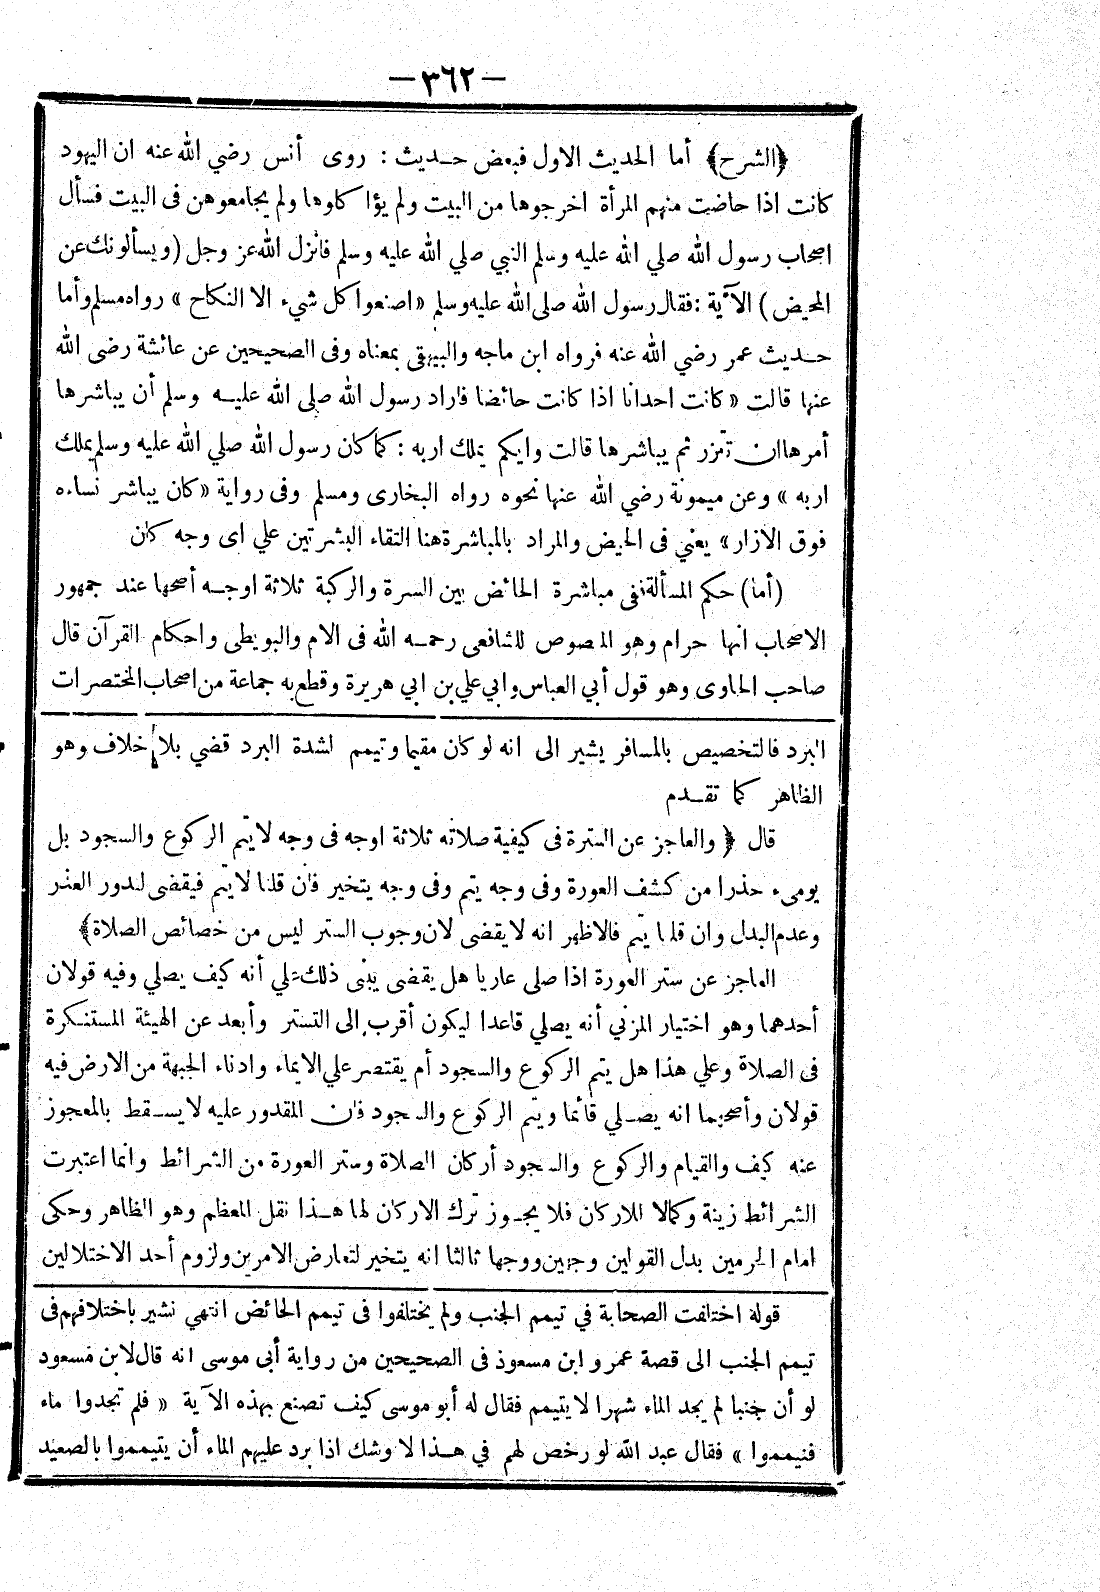 —٣٦٢—
﴿الشرح﴾ أما الحديث الاول فبعض حـديث : روى أنس رضي الله عنه ان اليهود
كانت اذا حاضت منهم المرأة اخرجوها من البيت ولم يؤا كاوها ولم يجامعوهن فى البيت فسأل
اصحاب رسول الله صلي الله عليه وسلم النبي صلي الله عليه وسلم فأنزل الله عز وجل (ويسألونك عن
المحيض) الآية : فقال رسول الله صلى الله عليه وسلم «اصنعوا كل شيء الا النكاح» رواه مسلم وأما
حـديث عمر رضي الله عنه فرواه ابن ماجه والبيهقى بمعناه وفى الصحيحين عن عائشة رضى الله
عنها قالت «كانت احدانا اذا كانت حائضا فأراد رسول الله صلى الله عليـه وسلم أن يباشرها
أمرها ان تتزر ثم يباشرها قالت وايكم يملك اربه : كما كان رسول الله صلي الله عليه وسلم يملك
اربه» وعن ميمونة رضي الله عنها نحوه رواه البخارى ومسلم وفى رواية «كان يباشر نساءه
فوق الازار» يعني فى الحيض والمراد بالمباشرة هنا التقاء البشرتين علي اى وجه كان
(أما) حكم المسألة ففى مباشرة الحائض بين السرة والركبة ثلاثة اوجـه أصحها عند جمهور
الاصحاب انها حرام وهو المنصوص للشافعى رحمـه الله فى الام والبويطى واحكام القرآن قال
صاحب الحاوى وهو قول أبي العباس وابي علي بن ابي هريرة وقطع به جماعة من اصحاب المختصرات
البرد فالتخصيص بالمسافر يشير الى انه لو كان مقيما وتيمم لشدة البرد قضي بلا خلاف وهو
الظاهر كما تقـدم
قال ﴿والعاجز عن السترة فى كيفية صلاته ثلاثة اوجه فى وجه لا يتم الركوع والسجود بل
يومىء حذرا من كشف العورة وفى وجه يتم وفى وجه يتخير فان قلنا لا يتم فيقضى لندور العذر
وعدم البدل وان قلنا يتم فالاظهر انه لا يقضى لان وجوب الستر ليس من خصائص الصلاة﴾
العاجز عن ستر العورة اذا صلى عاريا هل يقضى يبنى ذلك علي أنه كيف يصلي وفيه قولان
أحدهما وهو اختيار المزني أنه يصلي قاعدا ليكون أقرب الى التستر وأبعد عن الهيئة المستنكرة
فى الصلاة وعلي هذا هل يتم الركوع والسجود أم يقتصر علي الايماء وادناء الجبهة من الارض فيه
قولان وأصحهما انه يصـلي قائما ويتم الركوع والسجود فان المقدور عليه لا يسـقط بالمعجوز
عنه كيف والقيام والركوع والسجود أركان الصلاة وستر العورة من الشرائط وانما اعتبرت
الشرائط زينة وكمالا للاركان فلا يجـوز ترك الاركان لها هـذا نقل المعظم وهو الظاهر وحكى
امام الحرمين بدل القولين وجهين ووجها ثالثا انه يتخير لتعارض الامرين ولزوم أحد الاختلالين
قوله اختلفت الصحابة في تيمم الجنب ولم يختلفوا فى تيمم الحائض انتهي نشير باختلافهم فى
تيمم الجنب الى قصة عمر و ابن مسعود فى الصحيحين من رواية أبى موسى انه قال لابن مسعود
لو أن جنبا لم يجد الماء شهرا لا يتيمم فقال له أبو موسى كيف تصنع بهذه الآية « فلم تجدوا ماء
فتيمموا » فقال عبد الله لو رخص لهم في هـذا لا وشك اذا برد عليهم الماء أن يتيمموا بالصعيد